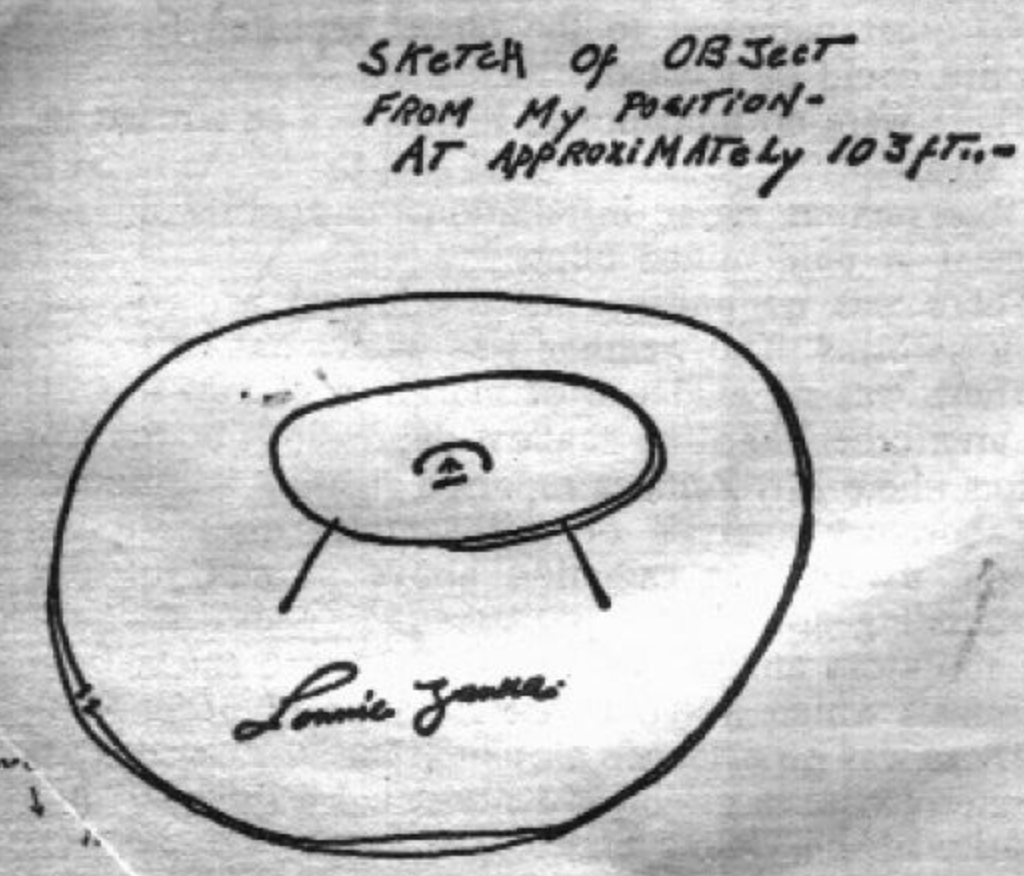 SKeTcH Of OBJecT
FROM My POSITION-
AT APPROXiMATeLy 103 fT..-
Lonnie Zamora